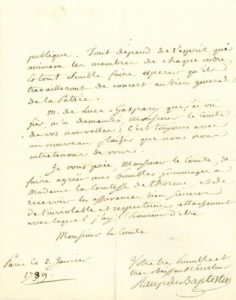 publique. Tout depend de l'esprit qui
animera les membres de chaque ordre
et tout semble faire esperer qu'ils
travailleront de concert au bien general
de la Patrie.
M. de Luce - Gaspari que j'ai vu
m'a demandé Monsieur le Comte
de vos nouvelles; C'est toujours avec
un nouveau plaisir que nous nous
entretenons de vous.
Je vous prie Monsieur le Comte, de
faire agréer mes humbles hommages à
Madame la Comtesse de et de
recevoir les assurances bien sinceres
de l'inviolable et respectueux attachement
avec lequel j'ai l'honneur d'être
Monsieur le Comte
Paris le 2. Janvier
1789.
Votre très humble et
très obeissant serviteur